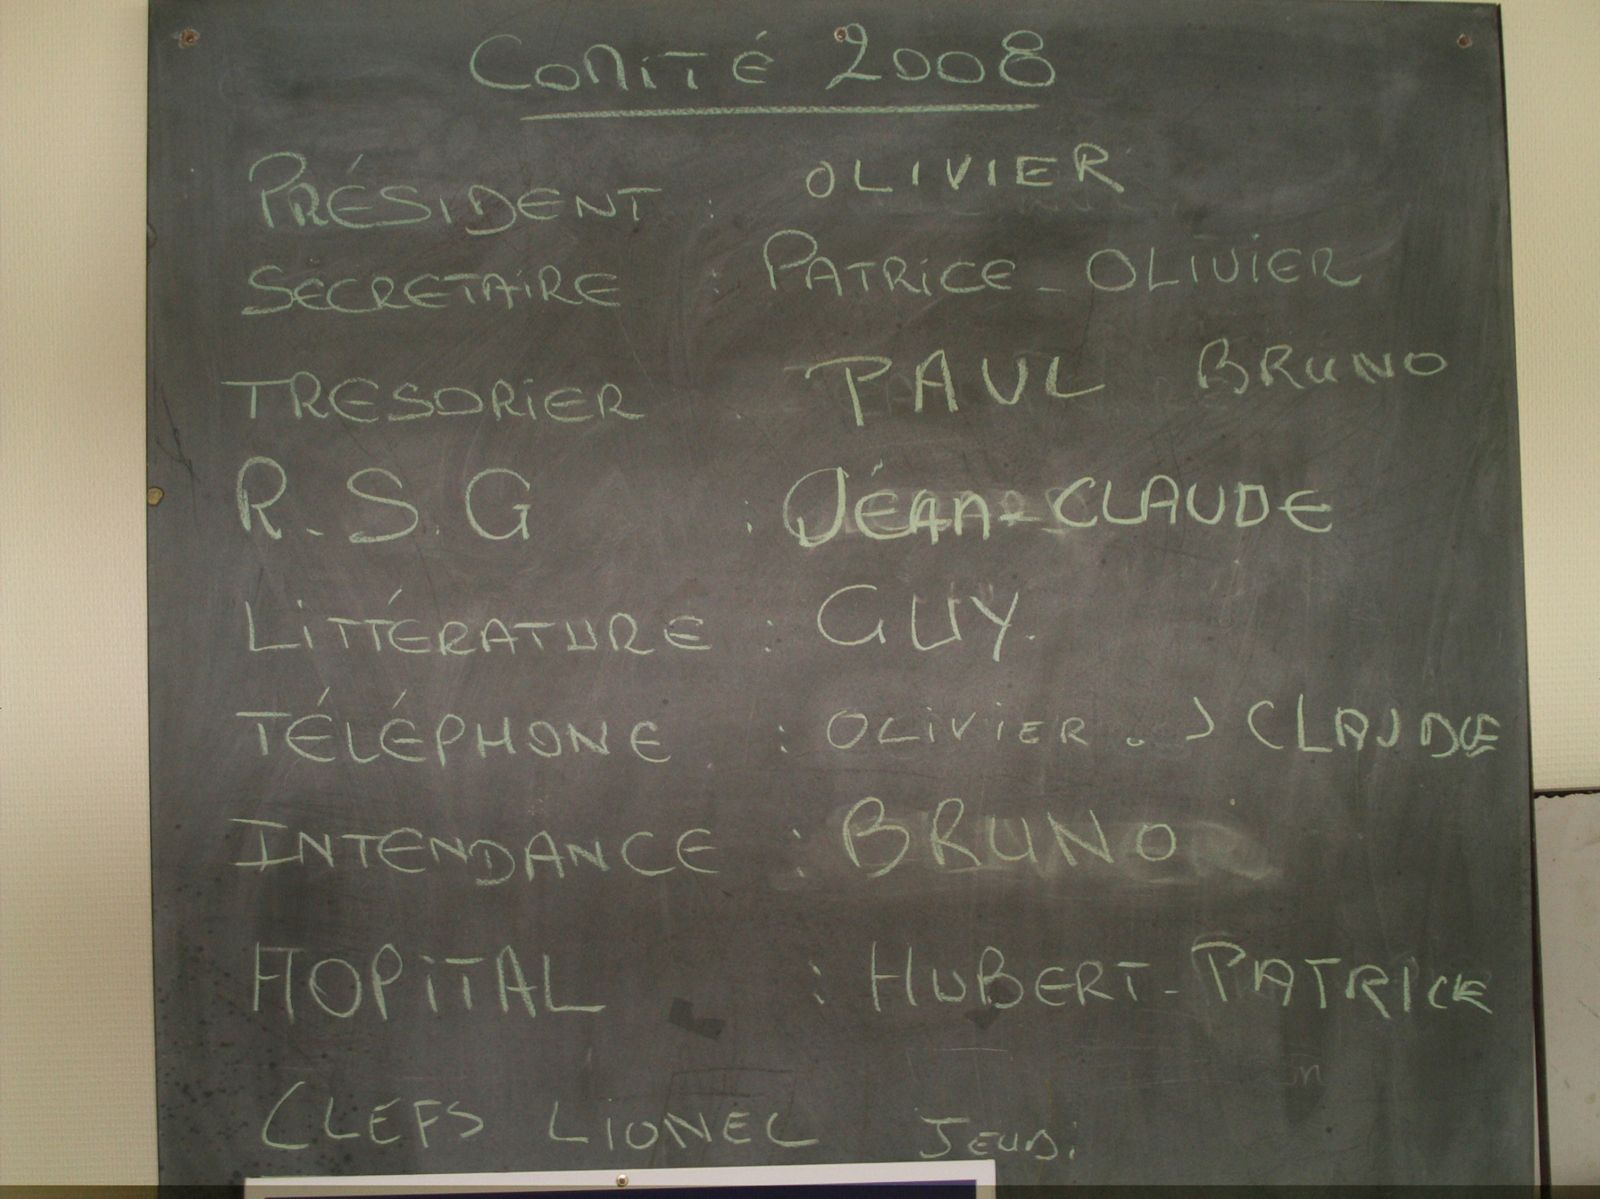 COMITÉ 2008
PRÉSIDENT : OLIVIER
SECRETAIRE : PATRICE - OLIVIER
TRESORIER : PAUL BRUNO
R.S.G : JÉAN-CLAUDE
LITTÉRATURE : GUY.
TÉLÉPHONE : OLIVIER . J CLAUDE
INTENDANCE : BRUNO
HOPITAL : HUBERT - PATRICE
CLEFS LIONEL JEUDI